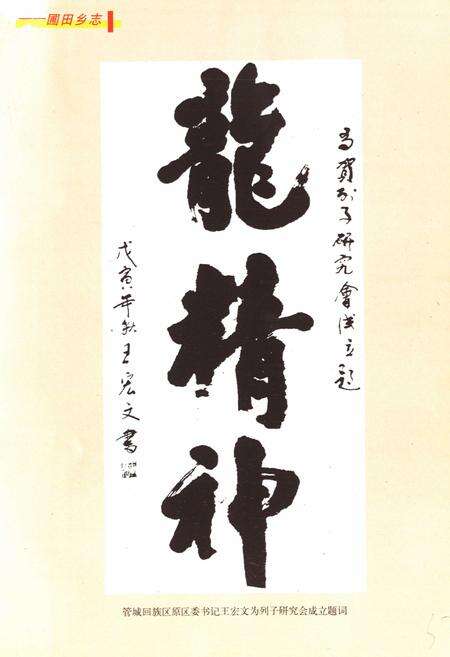 ——圃田乡志
龍精神
为贺列子研究會成立题
戊寅年秋王宏文書
管城回族区原区委书记王宏文为列子研究会成立题词